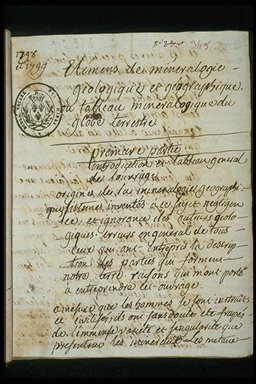 1798
et 1799
345
Elemens de mineralogie
geologique et geographique
ou tableau mineralogique du
globe terrestre
premiere partie
introduction et tableau general
de l'ouvrage
origine de la mineralogie geographi
que, inventée ce sujet negligen
ce et ignorance des auteurs geolo
giques erreurs en general de tous
ceux qui ont entrepris la descrip
tion des parties qui forment
notre terre raisons qui m'ont porté
a entreprendre cet ouvrage.
a mesure que les hommes se sont instruits
et ils ont sans doute été frapés
de l'immense varieté et singularité que
presentent les mineraux les metaux